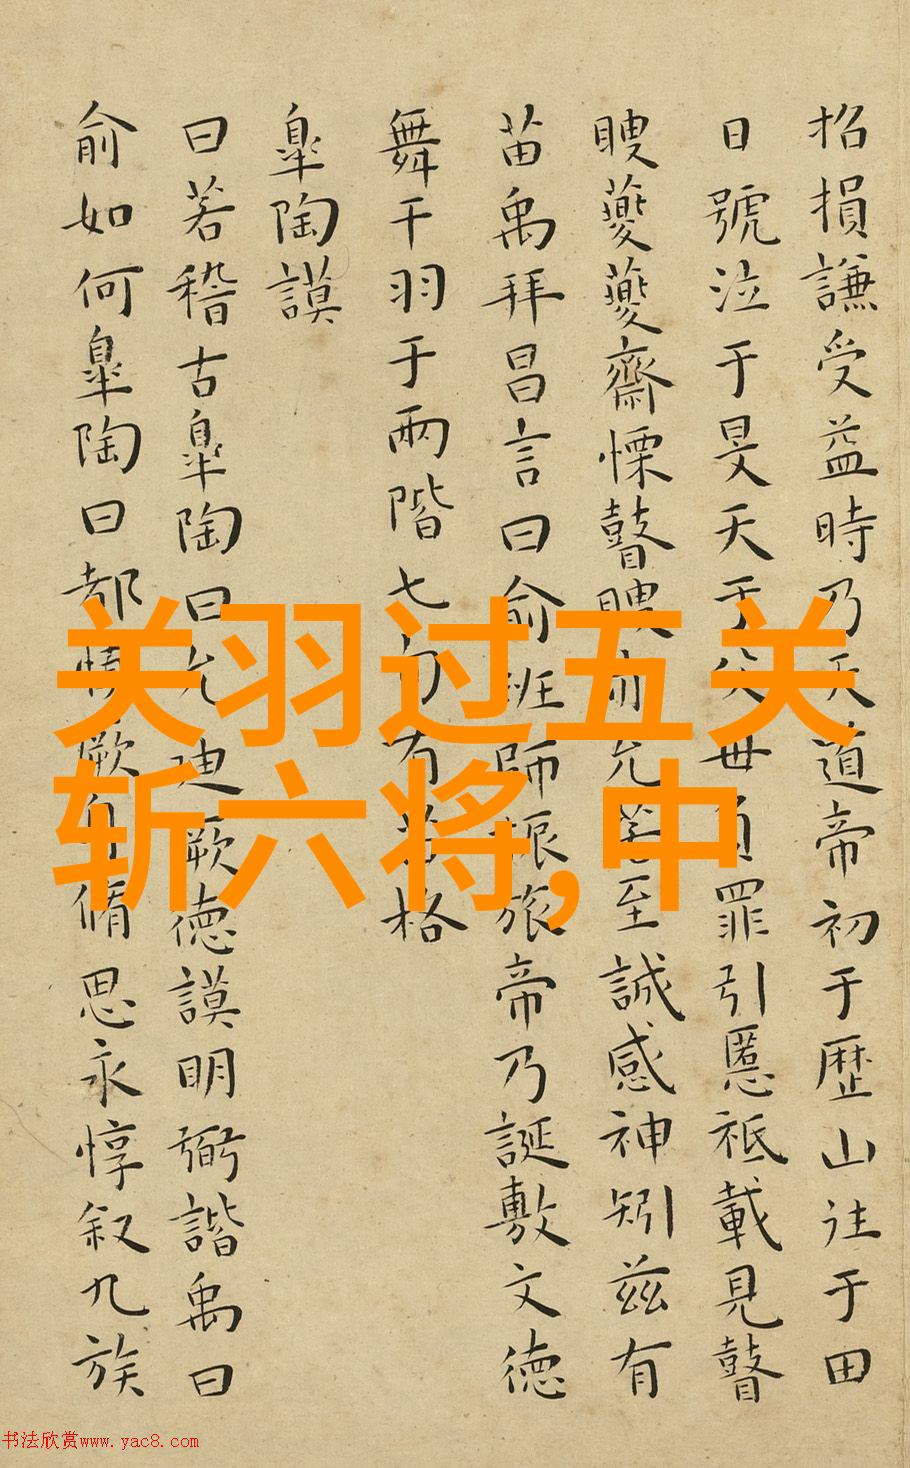 招損謙受益時乃天道帝初于歴山往于田
日號泣于旻天于父母負罪引慝祗載見瞽
瞍夔夔齋慄瞽瞍亦允若至誠感神矧兹有
苗禹拜昌言曰俞班師振旅帝乃誕敷文德
舞干羽于兩階七旬有苗格
皐陶謨
曰若稽古皐陶曰允迪厥德謨明弼諧禹曰
俞如何皐陶曰都慎厥身脩思永惇叙九族
关羽过五关
斩六将,中
书法欣赏www.yac8.com